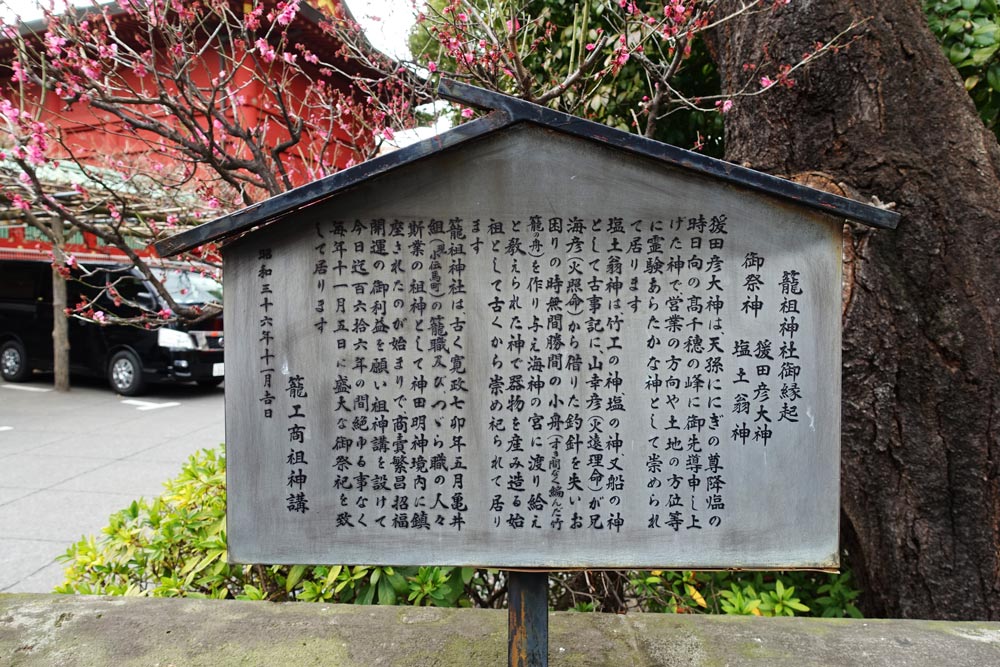 籠祖神社御縁起
御祭神　猿田彦大神
塩土翁神
猿田彦大神は天孫ににぎの尊降臨の
時日向の高千穂の峰に御先導申し上
げた神で営業の方向や土地の方位等
に霊験あらたかな神として崇められ
て居ります
塩土翁神は竹工の神塩の神又船の神
として古事記に山幸彦（火遠理命）が兄
海彦（火照命）から借りた釣針を失いお
困りの時無間勝間の小舟（すき間なく編んだ竹
籠の舟）を作り与え海神の宮に渡り給え
と教えられた神で器物を産み造る始
祖として古くから崇め祀られて居り
ます
籠祖神社は、古く寛政七卯年五月亀井
組（小伝馬町）の籠職及びつづら職の人々
斯業の祖神として神田明神境内に鎮
座されたのが始まりで、商売繁昌招福
開運の御利益を願い祖神講を設けて
今日迄百六十六年の間絶ゆる事なく
毎年十一月五日に盛大な御祭祀を致
して居ります
昭和三十六年十一月吉日
籠工商祖神講